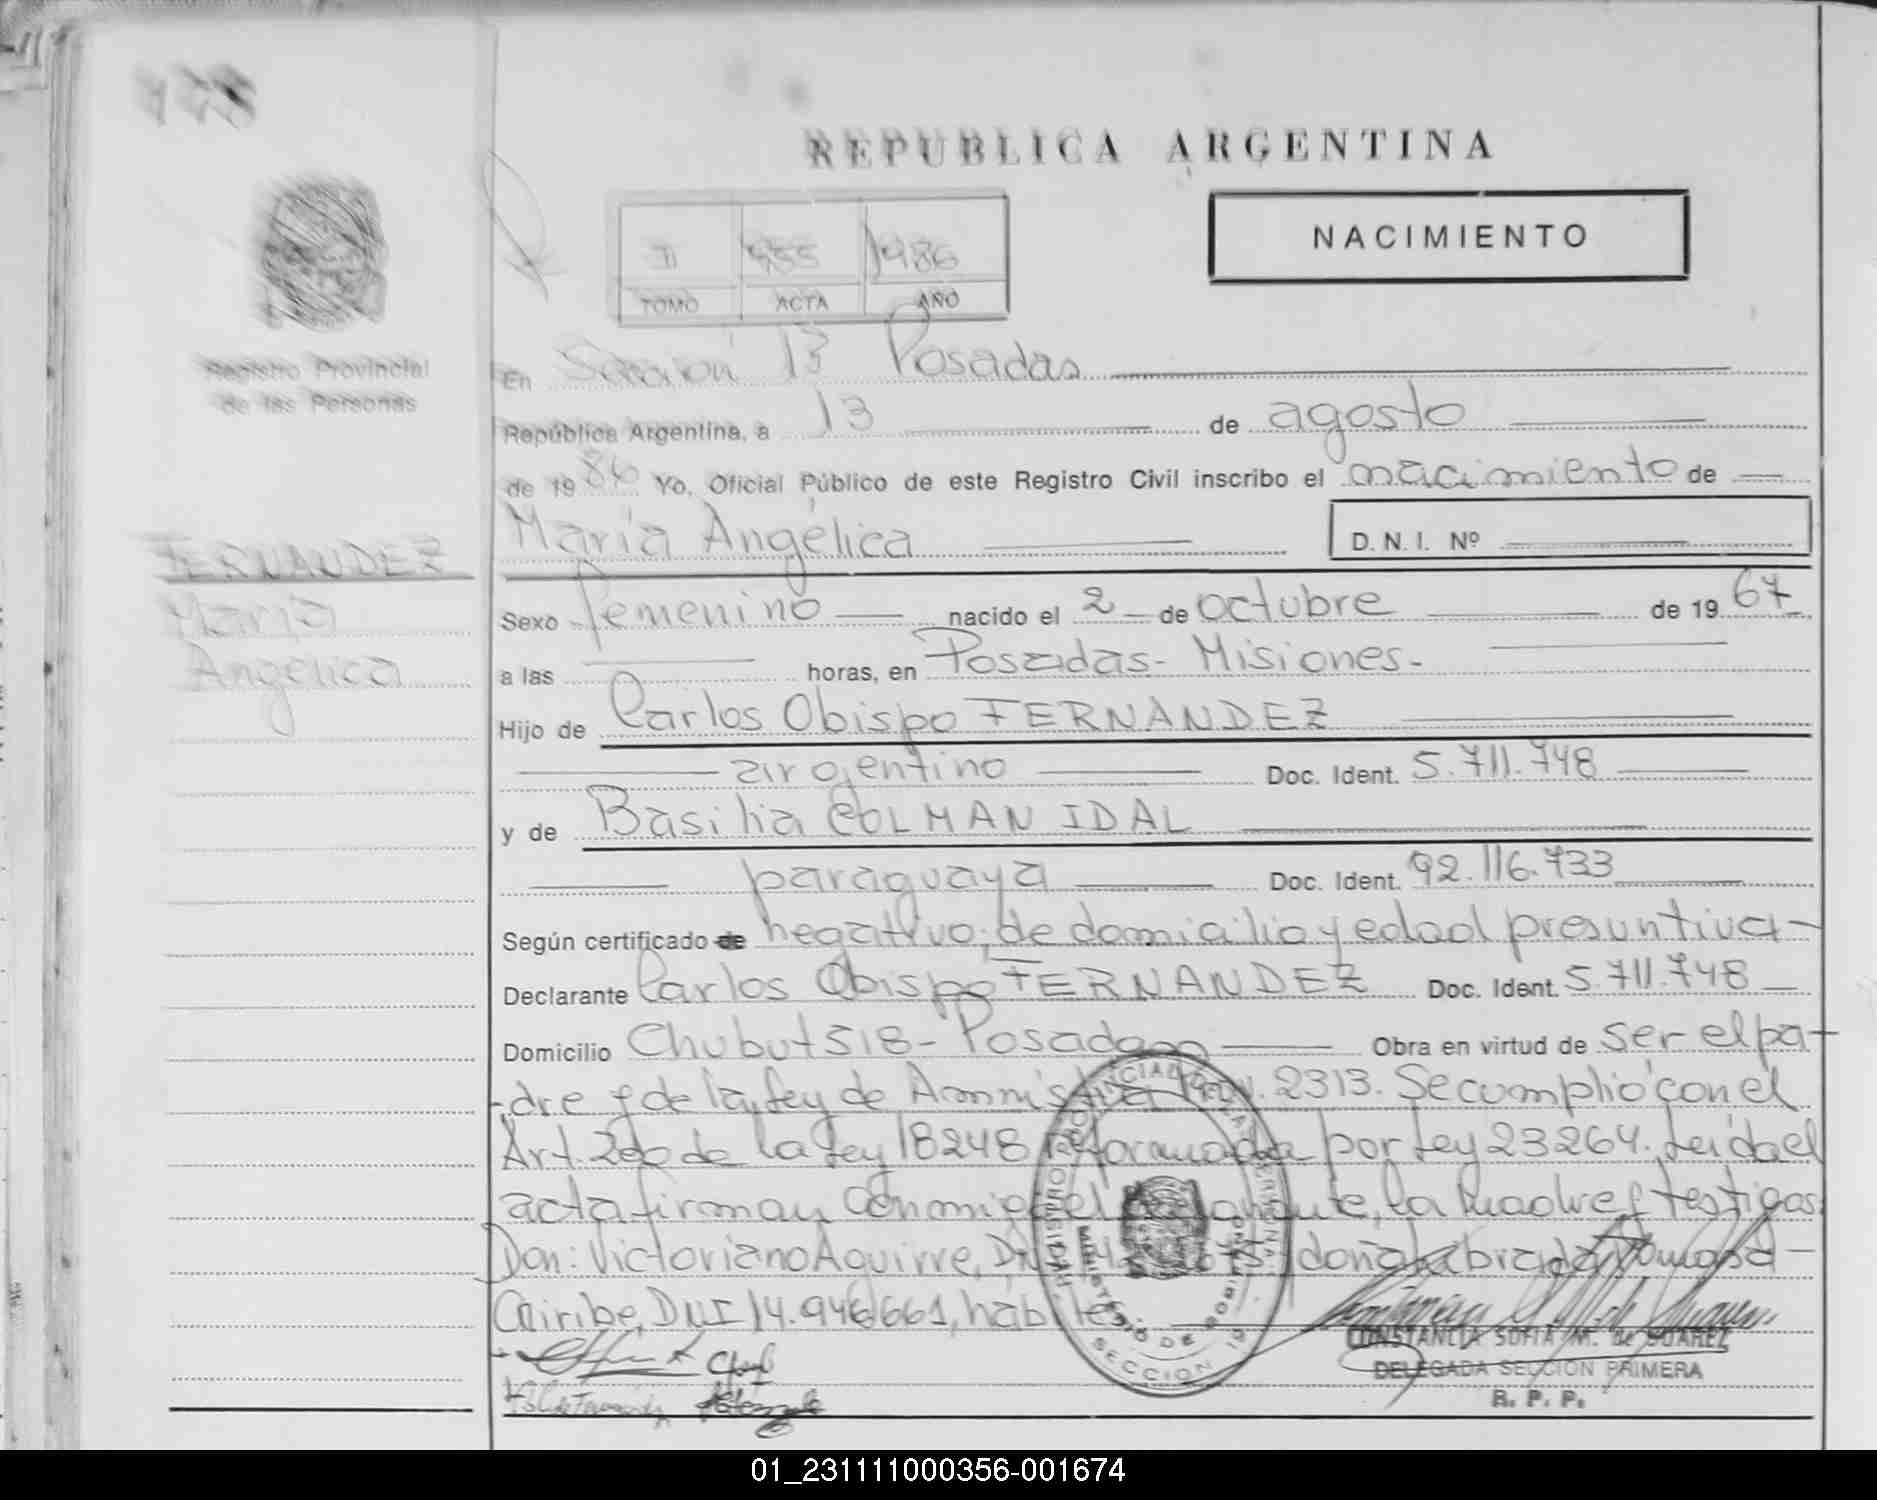 REPUBLICA ARGENTINA
II 955 1986
TOMO ACTA AÑO
NACIMIENTO
Registro Provincial
de las Personas
FERNANDEZ
María
Angélica
En Sección 13 Posadas
República Argentina, a 13 de agosto
de 1986 Yo, Oficial Público de este Registro Civil inscribo el nacimiento de
María Angélica D.N.I. Nº
Sexo femenino nacido el 2 de octubre de 1967
a las horas, en Posadas - Misiones.
Hijo de Carlos Obispo FERNANDEZ
argentino Doc. Ident. 5.711.748
y de Basilia COLMAN IDAL
paraguaya Doc. Ident. 92.116.733
Según certificado de negativo, de domicilio y edad presuntiva
Declarante Carlos Obispo FERNANDEZ Doc. Ident. 5.711.748
Domicilio Chubut 518 - Posadas Obra en virtud de ser el pa-
dre y de la Ley de Amnistía 2313. Se cumplió con el
Art. 2do de la Ley 18248 reformada por Ley 23264. Leída el
acta firman conmigo el declarante, la madre y testigos
Don: Victoriano Aguirre, y doña Tomasa
Cairibe, DNI 14.946.661, hábiles.
CONSTANCIA SOFIA M. de SUAREZ
DELEGADA SECCION PRIMERA
R. P. P.
MINISTERIO DE GOBIERNO
SECCION
01_231111000356-001674